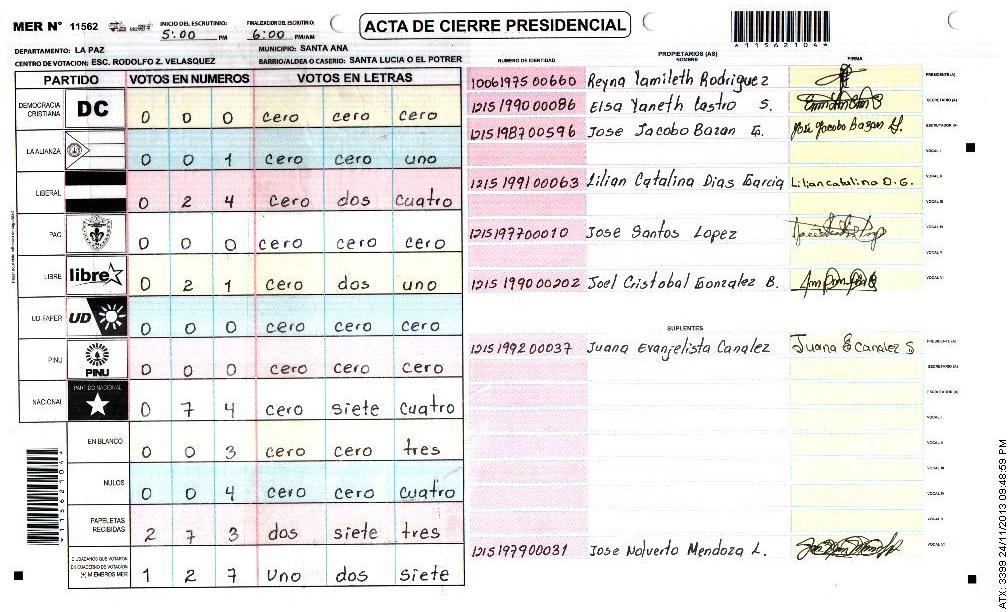 MER N° 11562
INICIO DEL ESCRUTINIO: 5:00 PM
FINALIZACION DEL ESCRUTINIO: 6:00 PM/AM
ACTA DE CIERRE PRESIDENCIAL
*11562104*
DEPARTAMENTO: LA PAZ
MUNICIPIO: SANTA ANA
CENTRO DE VOTACION: ESC. RODOLFO Z. VELASQUEZ
BARRIO/ALDEA O CASERIO: SANTA LUCIA O EL POTRER
PARTIDO VOTOS EN NUMEROS VOTOS EN LETRAS
DEMOCRACIA CRISTIANA DC 0 0 0 cero cero cero
LA ALIANZA 0 0 1 cero cero uno
LIBERAL 0 2 4 cero dos cuatro
PAC 0 0 0 cero cero cero
LIBRE libre 0 2 1 cero dos uno
UD-FAPER UD 0 0 0 cero cero cero
PINU PINU 0 0 0 cero cero cero
NACIONAL PARTIDO NACIONAL 0 7 4 cero siete cuatro
EN BLANCO 0 0 3 cero cero tres
NULOS 0 0 4 cero cero cuatro
PAPELETAS RECIBIDAS 2 7 3 dos siete tres
CIUDADANOS QUE VOTARON EN CUADERNO DE VOTACION (+) MIEMBROS MER 1 2 7 uno dos siete
*11562104*
PROPIETARIOS (AS)
NUMERO DE IDENTIDAD NOMBRE FIRMA
1006197500660 Reyna Yamileth Rodriguez PRESIDENTE(A)
1215199000086 Elsa Yaneth Castro S. SECRETARIO (A)
1215198700596 Jose Jacobo Bazan G. Jose Jacobo Bazan G. ESCRUTADOR (A)
VOCAL I
1215199100063 Lilian Catalina Dias Garcia Lilian catalina D. G. VOCAL II
VOCAL III
1215197700010 Jose Santos Lopez VOCAL IV
VOCAL V
1215199000202 Joel Cristobal Gonzalez B. VOCAL VI
SUPLENTES
1215199200037 Juana Evanjelista Canalez Juana E Canalez S PRESIDENTE (A)
SECRETARIO (A)
ESCRUTADOR (A)
VOCAL I
VOCAL II
VOCAL III
VOCAL IV
VOCAL V
1215197900031 Jose Nolverto Mendoza L. VOCAL VI
ATX: 3399 24/11/2013 09:48:59 PM